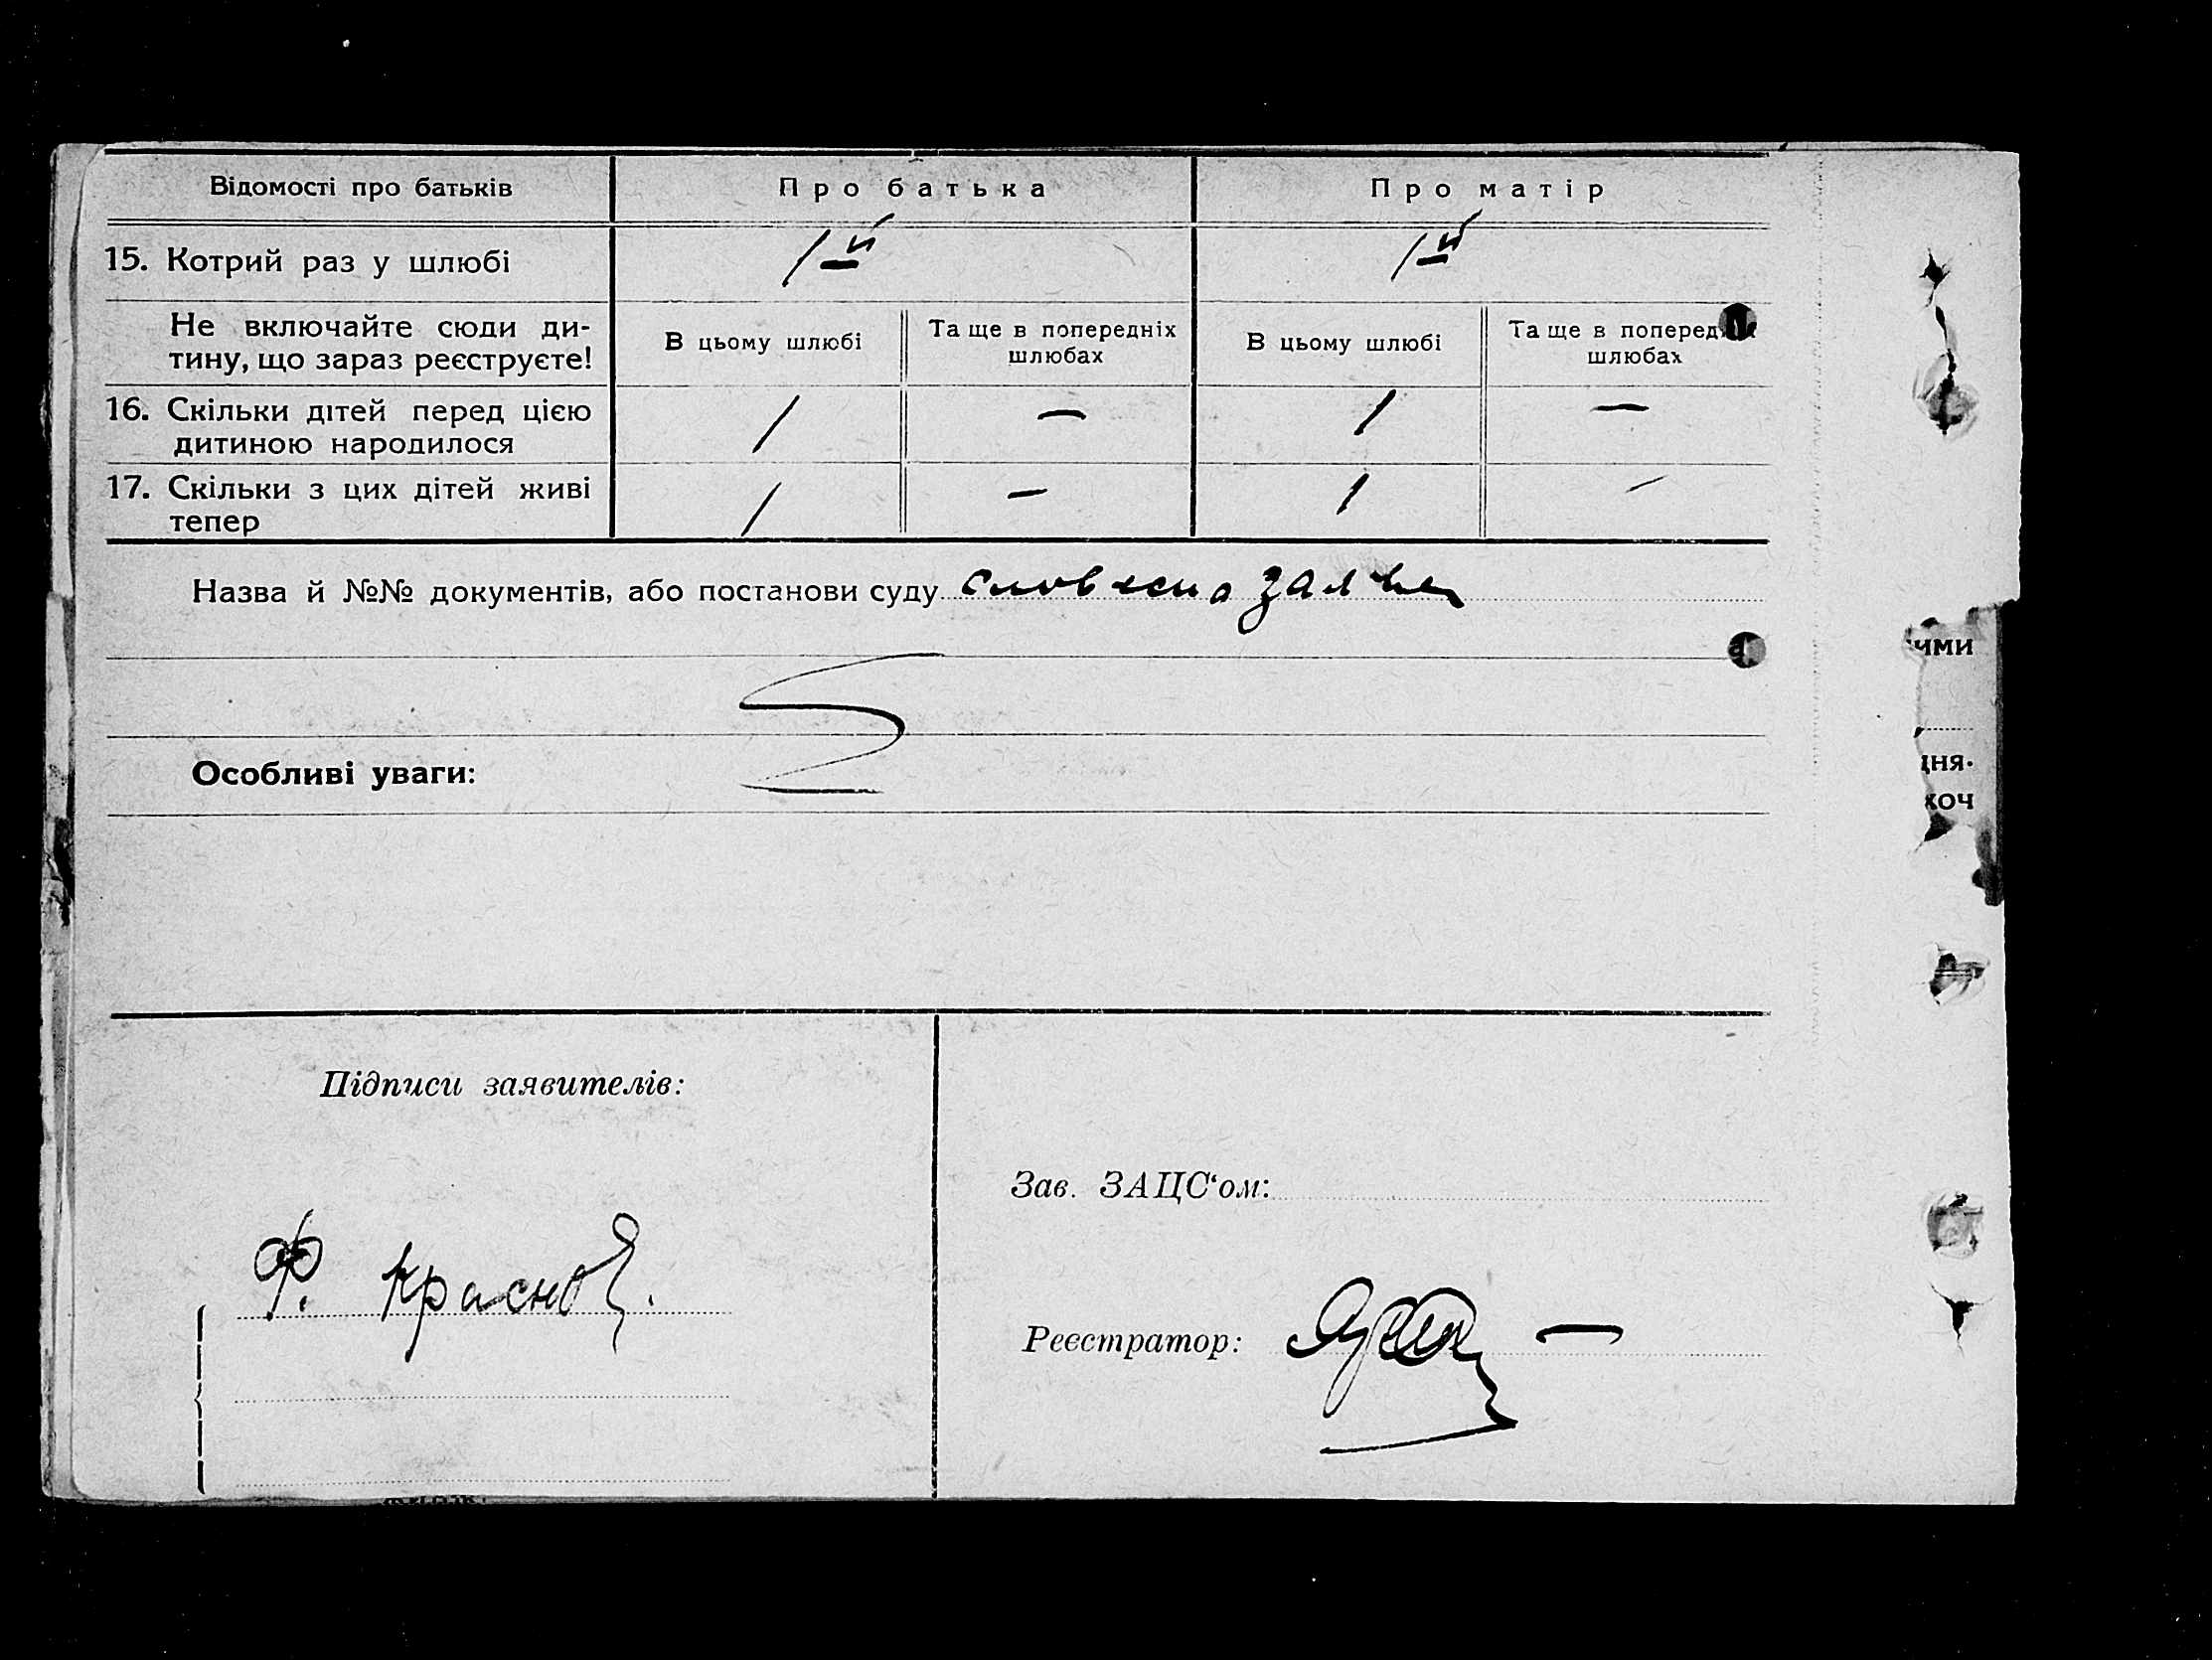 Відомості про батьків Про батька Про матір
15. Котрий раз у шлюбі 1-й 1-й
Не включайте сюди ди-
тину, що зараз реєструєте!
В цьому шлюбі
Та ще в попередніх
шлюбах
В цьому шлюбі
Та ще в
шлюбах
16. Скільки дітей перед цією
дитиною народилося
1 — 1 —
17. Скільки з цих дітей живі
тепер
1 — 1 —
Назва й №№ документів, або постанови суду словесна заява
Особливі уваги:
Підписи заявителів:
Зав. ЗАЦС'ом:
Ф. Краснов.
Реєстратор:
ими
дня-
хоч